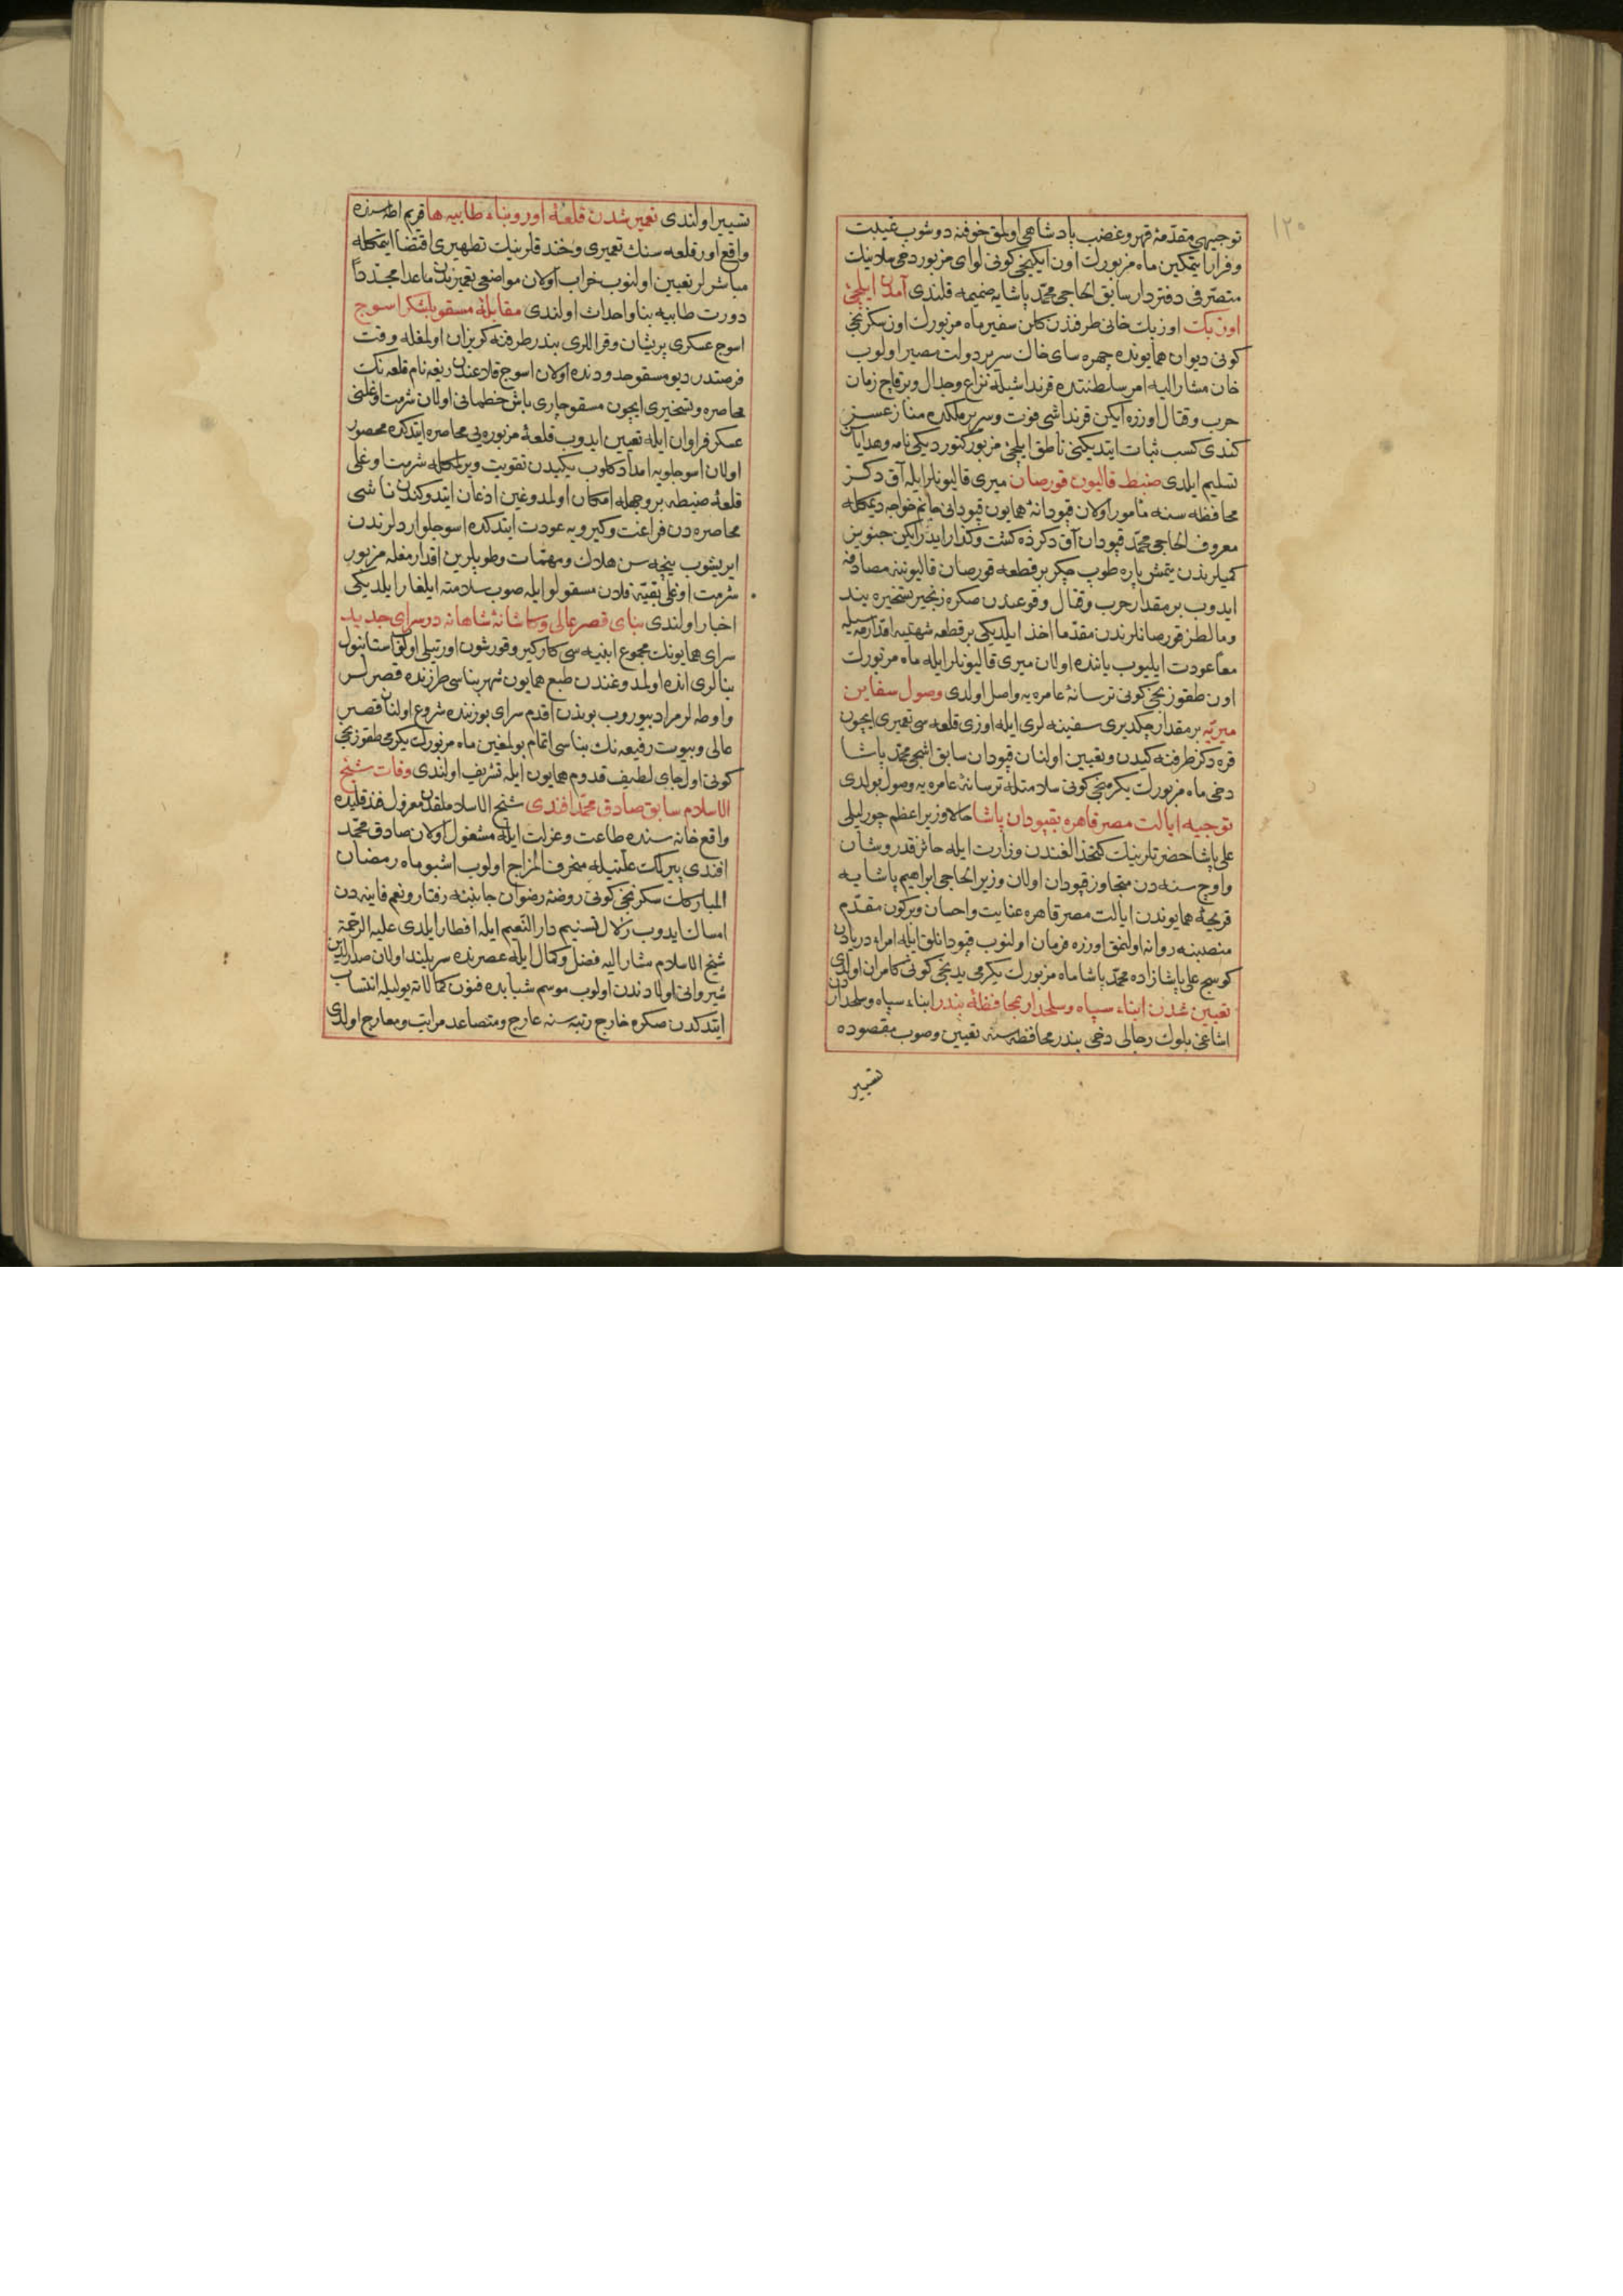 ١٢٠
توجيهى مقدّمهٔ قهر و غضب پادشاهى اولمق خوفنه دوشوب غيبت
و فرار ايتمكين ماه مزبورك اون ايكنجى كونى لواى مزبور دخى سلانيك
متصرّفى دفتردار سابق الحاجى محمّد پاشايه ضميمه قلندى آمدن ايلچئ
اوزبك اوزبك خانى طرفندن كلن سفير ماه مزبورك اون سكزنجى
كونى ديوان همايونده چهره ساى خاك سرير دولت مصير اولوب
خان مشار اليه امر سلطنتده قرنداشيله نزاع و جدال و برقاچ زمان
حرب و قتال اوزره ايكن قرنداشى فوت و سرير ملكده مناز عسز
كندى كسب ثبات ايتديكنى ناطق ايلچئ مزبور كتورديكى نامه و هدايا
تسليم ايلدى ضبط قاليون قورصان ميرى قاليونلر ايله آق دكز
محافظه سنه مأمور اولان قپودانهٔ همايون قپودانى جانم خواجه ديمكله
معروف الحاجى محمّد قپودان آق دكزده كشت و كذار ايدرايكن جنويز
كميلرندن يتمش پاره طوپ چكر بر قطعه قورصان قاليوننه مصادفه
ايدوب بر مقدار حرب و قتال وقوعندن صكره زنجير تسخيره بند
و مالطز قورصانلرندن مقدّما اخذ ايلديكى بر قطعه شهتيه
معا عودت ايليوب ياننده اولان ميرى قاليونلر ايله ماه مزبورك
اون طقوزنجى كونى ترسانهٔ عامره يه واصل اولدى وصول سفاين
ميريّه بر مقدار چكديرى سفينه لرى ايله اوزى قلعه سى تعميرى ايچون
قره دكز طرفنه كيدن و تعيين اولنان قپودان سابق اشجى محمّد پاشا
دخى ماه مزبورك يكرمنجى كونى سلامتله ترسانهٔ عامره يه وصول بولدى
توجيه ايالت مصر قاهره بقپودان پاشا حالا وزير اعظم چورليلى
على پاشا حضرتلرينك كتخدالغندن وزارت ايله حائز قدر و شان
و اوچ سنه دن متجاوز قپودان اولان وزير الحاجى ابراهيم پاشايه
قريحهٔ همايوندن ايالت مصر قاهره عنايت و احسان و بركون مقدّم
منصبنه روانه اولنمق اوزره فرمان اولنوب قپودانلق ايله امراء دريادن
كوسج على پاشا زاده محمّد پاشا ماه مزبورك يكرمى يدنجى كونى كامران اولدى
تعيين شدن ابناء سپاه و سلحدار بمحافظهٔ بندر ابناء سپاه و سلحداردن
اشاغى بلوك رجالى دخى بندر محافظه سنه تعيين و صوب مقصوده
تسيير
تسيير اولندى تعمير شدن قلعهٔ اور و بناء طابيه ها قريم اطه سنده
واقع اور قلعه سنك تعميرى و خندقلرينك تطهيرى اقتضا ايتمكله
مباشرلر تعيين اولنوب خراب اولان مواضعى تعميرندن ماعدا مجدّدًا
دورت طابيه بنا و احداث اولندى مقابلهٔ مسقو بلشكر اسوج
اسوج عسكرى پريشان و قراللرى بندر طرفنه كريزان اولمغله وقت
فرصتدر ديو مسقو حدودنده اولان اسوج قلاعندن ريغه نام قلعه نك
محاصره و تسخيرى ايچون مسقو چارى باش خطمانى اولان شرمت اوغلنى
عسكر فراوان ايله تعيين ايدوب قلعهٔ مزبوره يى محاصره ايتدكده محصور
اولان اسوجلويه امداد كلوب يكيدن تقويت ويرلمكله شرمت اوغلى
قلعهٔ ضبطه بر وجهله امكان اولمدوغين اذعان ايتدوكندن ناشى
محاصره دن فراغت و كيرويه عودت ايتدكده اسوجلو اردلرندن
ايريشوب نيچه سن هلاك و مهمّات و طوپلرين اقدارمغله مزبور
شرمت اوغلى بقيّه قلان مسقولو ايله صوب سلامته ايلغار ايلديكى
اخبار اولندى بناى قصر عالى و كاشانهٔ شاهانه در سراى جديد
سراى همايونك مجموع ابنيه سى كاركير و قورشون اورتيلى اولوب استانبول
بنالرى انده اولمدوغندن طبع همايون شهر بناسى طرزنده قصرلر
و اوطه لر مراد بيوروب بوندن اقدم سراى بوزنده شروع اولنان قصر
عالى و بيوت رفيعه نك بناسى اتمام بولمغين ماه مزبورك يكرمى طقوزنجى
كونى اول جاى لطيف قدوم همايون ايله تشريف اولندى وفات شيخ
الاسلام سابق صادق محمّد افندى شيخ الاسلاملقدن معزول قندقليده
واقع خانه سنده طاعت و عزلت ايله مشغول اولان صادق محمّد
افندى پيرلك علّتيله منحرف المزاج اولوب اشبو ماه رمضان
المبارك سكزنجى كونى روضهٔ رضوان جانبنه رفتار و نعم فانيه دن
امساك ايدوب زلال تسنيم دار النّعيم ايله افطار ايلدى عليه الرّحمة
شيخ الاسلام مشار اليه فضل و كمال ايله عصرنده سربلند اولان صدر الدّين
شيروانى اولادندن اولوب موسم شبابده فنون كمالاته يوليله انتساب
ايتدكدن صكره خارج رتبه سنه عارج و متصاعد مراتب و معارج اولدى